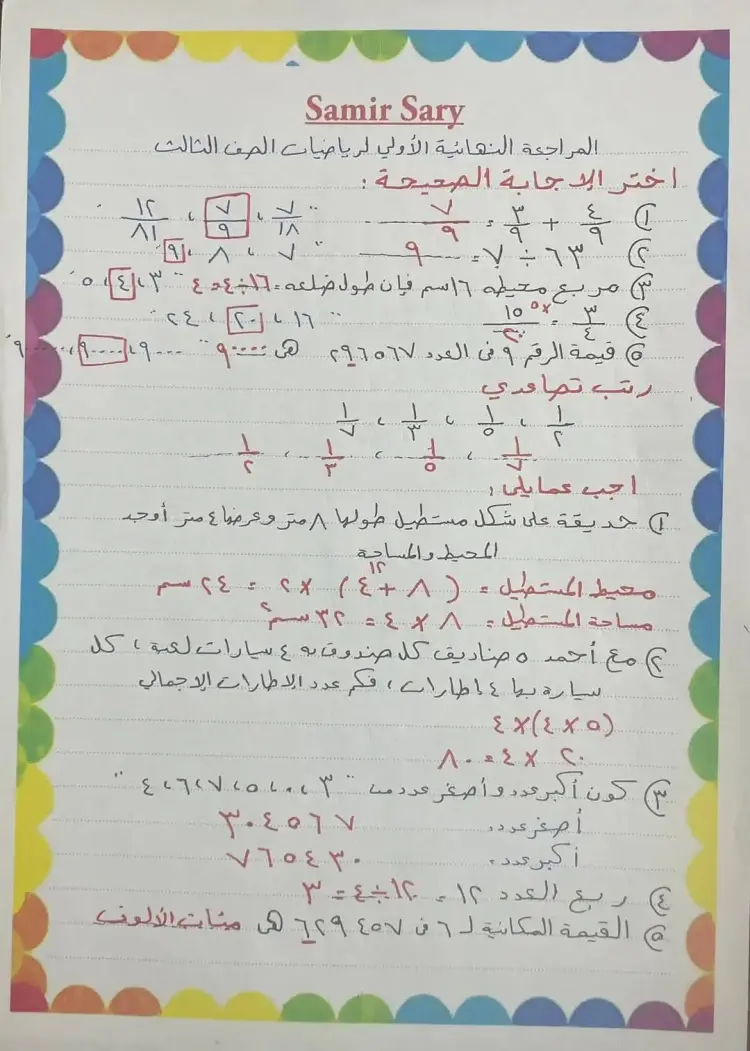 Samir Sary
المراجعة النهائية الأولي لرياضيات الصف الثالث
اختر الاجابة الصحيحة :
① ٤/٩ + ٣/٩ = ٧/٩ " ٧/١٨ ، ٧/٩ ، ١٢/٨١ "
② ٦٣ ÷ ٧ = ٩ " ٧ ، ٨ ، ٩ "
③ مربع محيطه ١٦ سم فإن طول ضلعه = ١٦ ÷ ٤ = ٤ " ٣ ، ٤ ، ٥
④ ٣/٤ = ١٥/٢٠ ×٥ " ١٦ ، ٢٠ ، ٢٤ "
⑤ قيمة الرقم ٩ في العدد ٢٩٦٥٦٧ هى ٩٠٠٠٠ " ٩٠٠٠ ، ٩٠٠٠٠ ، ٩٠٠٠٠٠
رتب تصاعدي
١/٢ ، ١/٥ ، ١/٣ ، ١/٧
١/٧ ، ١/٥ ، ١/٣ ، ١/٢
اجب عمايلى :
① حديقة على شكل مستطيل طولها ٨ متر وعرضها ٤ متر أوجد
المحيط والمساحة
١٢
محيط المستطيل = ( ٨ + ٤ ) × ٢ = ٢٤ سم
مساحة المستطيل = ٨ × ٤ = ٣٢ سم²
② مع أحمد ٥ صناديق كل صندوق به ٤ سيارات لعبة ، كل
سيارة بها ٤ اطارات ، فكم عدد الاطارات الاجمالي
(٥ × ٤) × ٤
٢٠ × ٤ = ٨٠
③ كون أكبر عدد وأصغر عدد من " ٣ ، ٠ ، ٥ ، ٧ ، ٦ ، ٤ "
أصغر عدد = ٣٠٤٥٦٧
أكبر عدد = ٧٦٥٤٣٠
④ ربع العدد ١٢ = ١٢ ÷ ٤ = ٣
⑤ القيمة المكانية لـ ٦ فى ٦٢٩٤٥٧ هى مئات الألوف